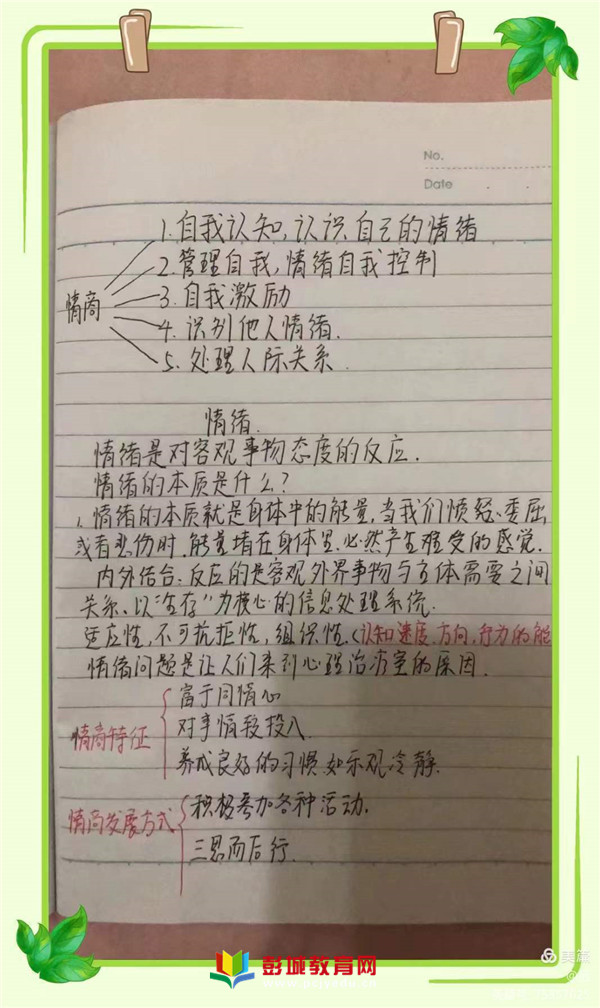 No.
Date
1.自我认知,认识自己的情绪
2.管理自我,情绪自我控制
情商
3.自我激励
4.识别他人情绪.
5.处理人际关系.
情绪.
情绪是对客观事物态度的反应.
情绪的本质是什么?
1、情绪的本质就是身体中的能量,当我们愤怒、委屈
或有悲伤时,能量堵在身体里,必然产生难受的感觉.
内外结合:反应的是客观外界事物与主体需要之间
关系、以"生存"为核心的信息处理系统.
适应性,不可抗拒性,组织性.(认知速度.方向,行为的能
情绪问题是让人们来到心理治疗室的原因.
富于同情心
情商特征
对事情较投入.
养成良好的习惯.如乐观冷静.
情商发展方式
积极参加各种活动.
三思而后行.
彭城教育网
美篇